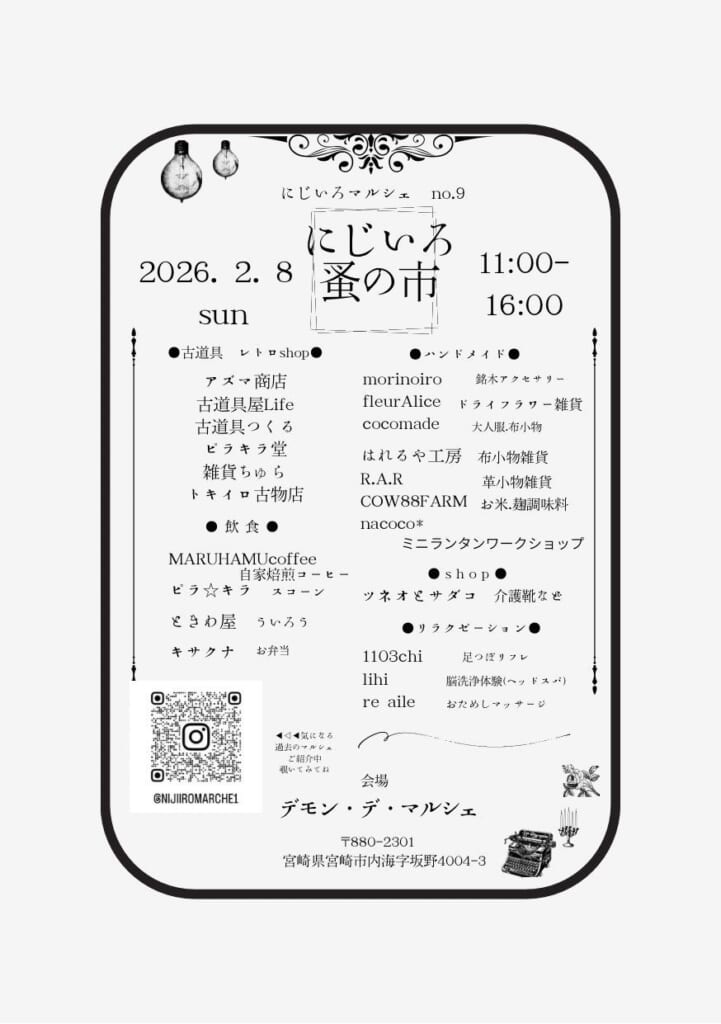 にじいろマルシェ no.9
にじいろ
蚤の市
2026. 2. 8
sun
11:00-
16:00
●古道具 レトロshop●
アズマ商店
古道具屋Life
古道具つくる
ピラキラ堂
雑貨ちゅら
トキイロ古物店
●飲食●
MARUHAMUcoffee
自家焙煎コーヒー
ピラ☆キラ スコーン
ときわ屋 ういろう
キサクナ お弁当
●ハンドメイド●
morinoiro 銘木アクセサリー
fleurAlice ドライフラワー雑貨
cocomade 大人服.布小物
はれるや工房 布小物雑貨
R.A.R 革小物雑貨
COW88FARM お米.麹調味料
nacoco*
ミニランタンワークショップ
●shop●
ツネオとサダコ 介護靴など
●リラクゼーション●
1103chi 足つぼリフレ
lihi 脳洗浄体験(ヘッドスパ)
re aile おためしマッサージ
@NIJIIROMARCHE1
◀◁◀気になる
過去のマルシェ
ご紹介中
覗いてみてね
会場
デモン・デ・マルシェ
〒880-2301
宮崎県宮崎市内海字坂野4004-3